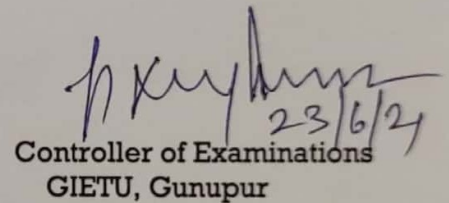 23/6/21
Controller of Examinations
GIETU, Gunupur